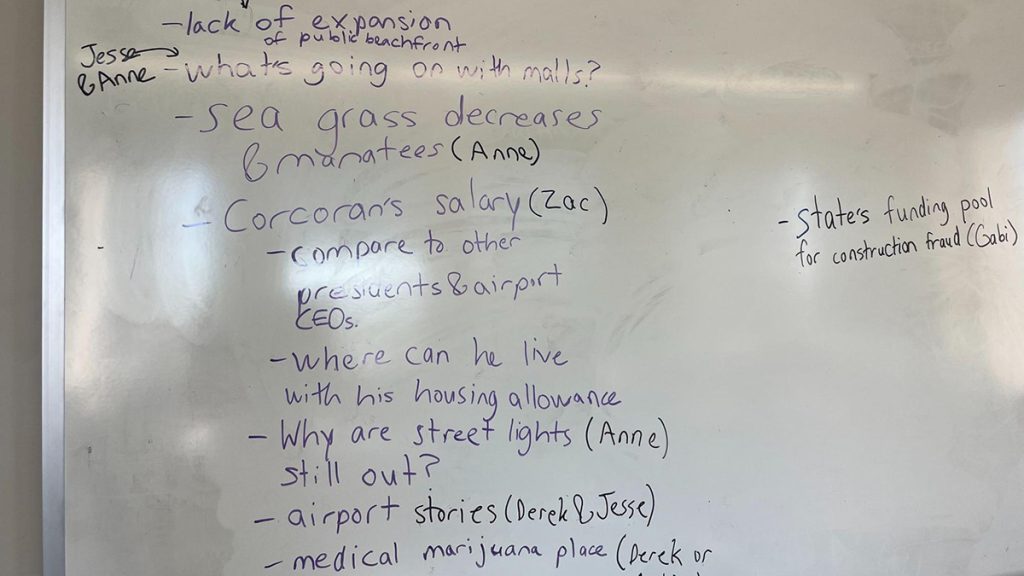 -lack of expansion
of public beachfront
Jesse
& Anne -what's going on with malls?
-sea grass decreases
& manatees (Anne)
- Corcoran's salary (Zac)
-compare to other
presidents & airport
CEOs.
-where can he live
with his housing allowance
- Why are street lights (Anne)
still out?
- airport stories (Derek & Jesse)
- medical marijuana place (Derek or
- State's funding pool
for construction fraud (Gabi)